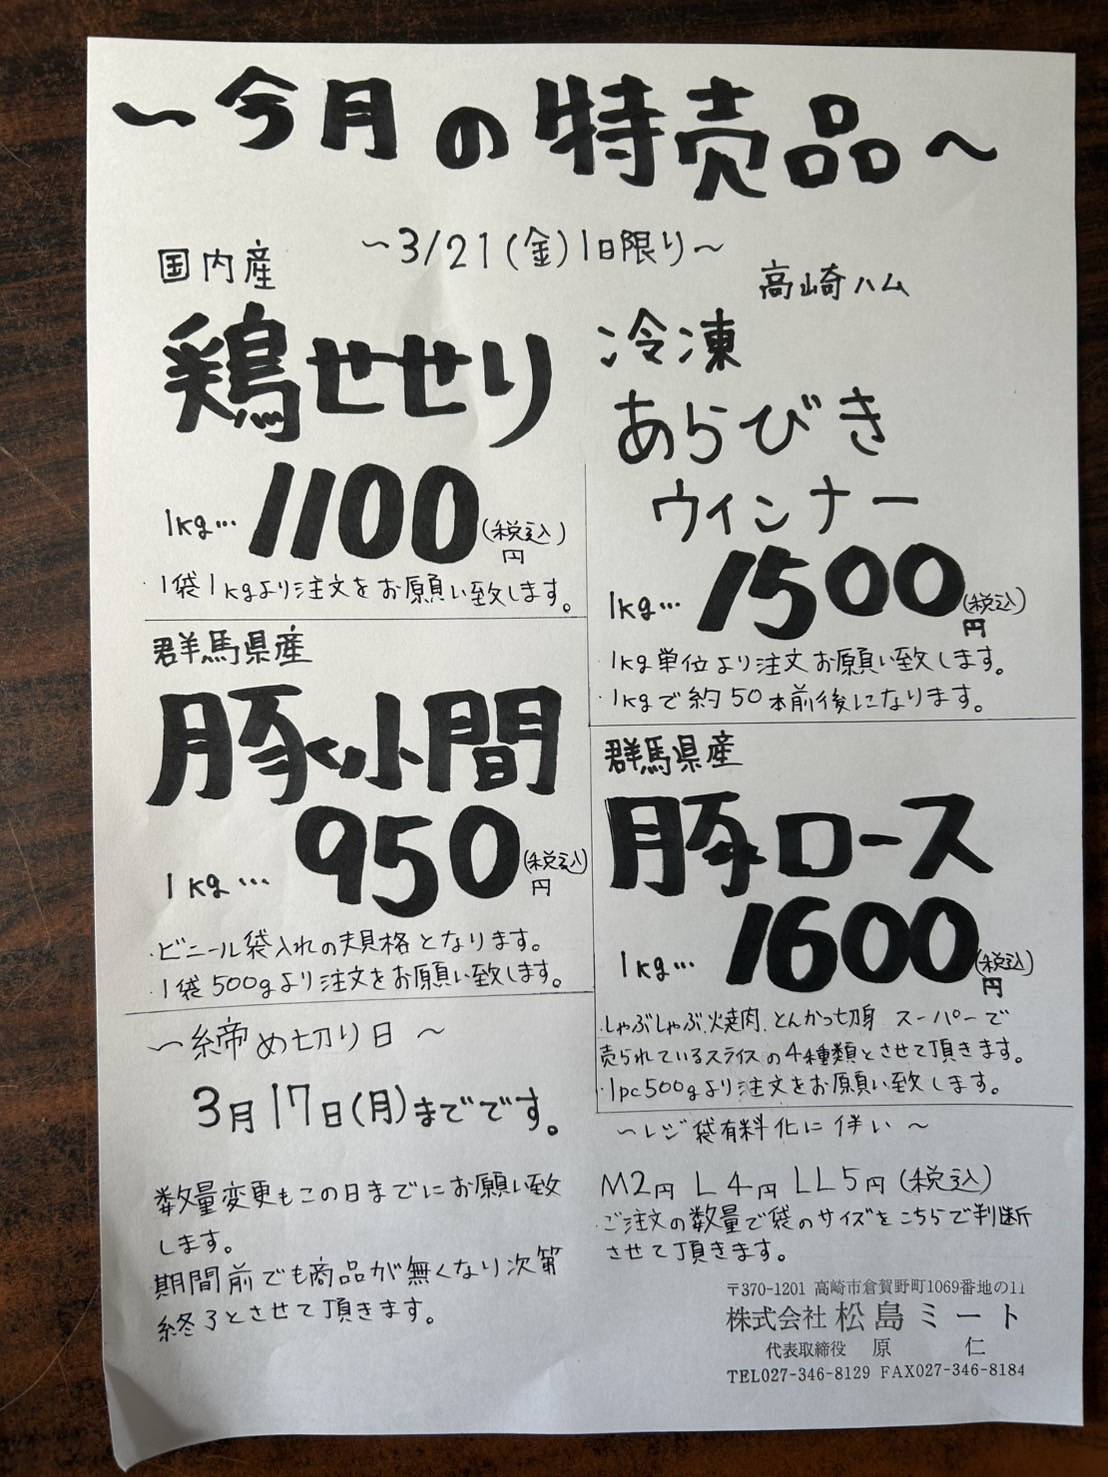 ～今月の特売品～
～3/21(金)1日限り～
国内産
鶏せせり
1kg… 1100円(税込)
・1袋1kgより注文をお願い致します。
高崎ハム
冷凍
あらびき
ウインナー
1kg… 1500円(税込)
・1kg単位より注文お願い致します。
・1kgで約50本前後になります。
群馬県産
豚小間
1kg… 950円(税込)
・ビニール袋入れの規格となります。
・1袋500gより注文をお願い致します。
群馬県産
豚ロース
1kg… 1600円(税込)
・しゃぶしゃぶ、焼肉、とんかつ切身 スーパーで
売られているスライスの4種類とさせて頂きます。
・1pc500gより注文をお願い致します。
～締め切り日～
3月17日(月)までです。
数量変更もこの日までにお願い致
します。
期間前でも商品が無くなり次第
終了とさせて頂きます。
～レジ袋有料化に伴い～
M2円 L4円 LL5円(税込)
・ご注文の数量で袋のサイズをこちらで判断
させて頂きます。
〒370-1201 高崎市倉賀野町1069番地の11
株式会社 松島ミート
代表取締役 原 仁
TEL027-346-8129 FAX027-346-8184